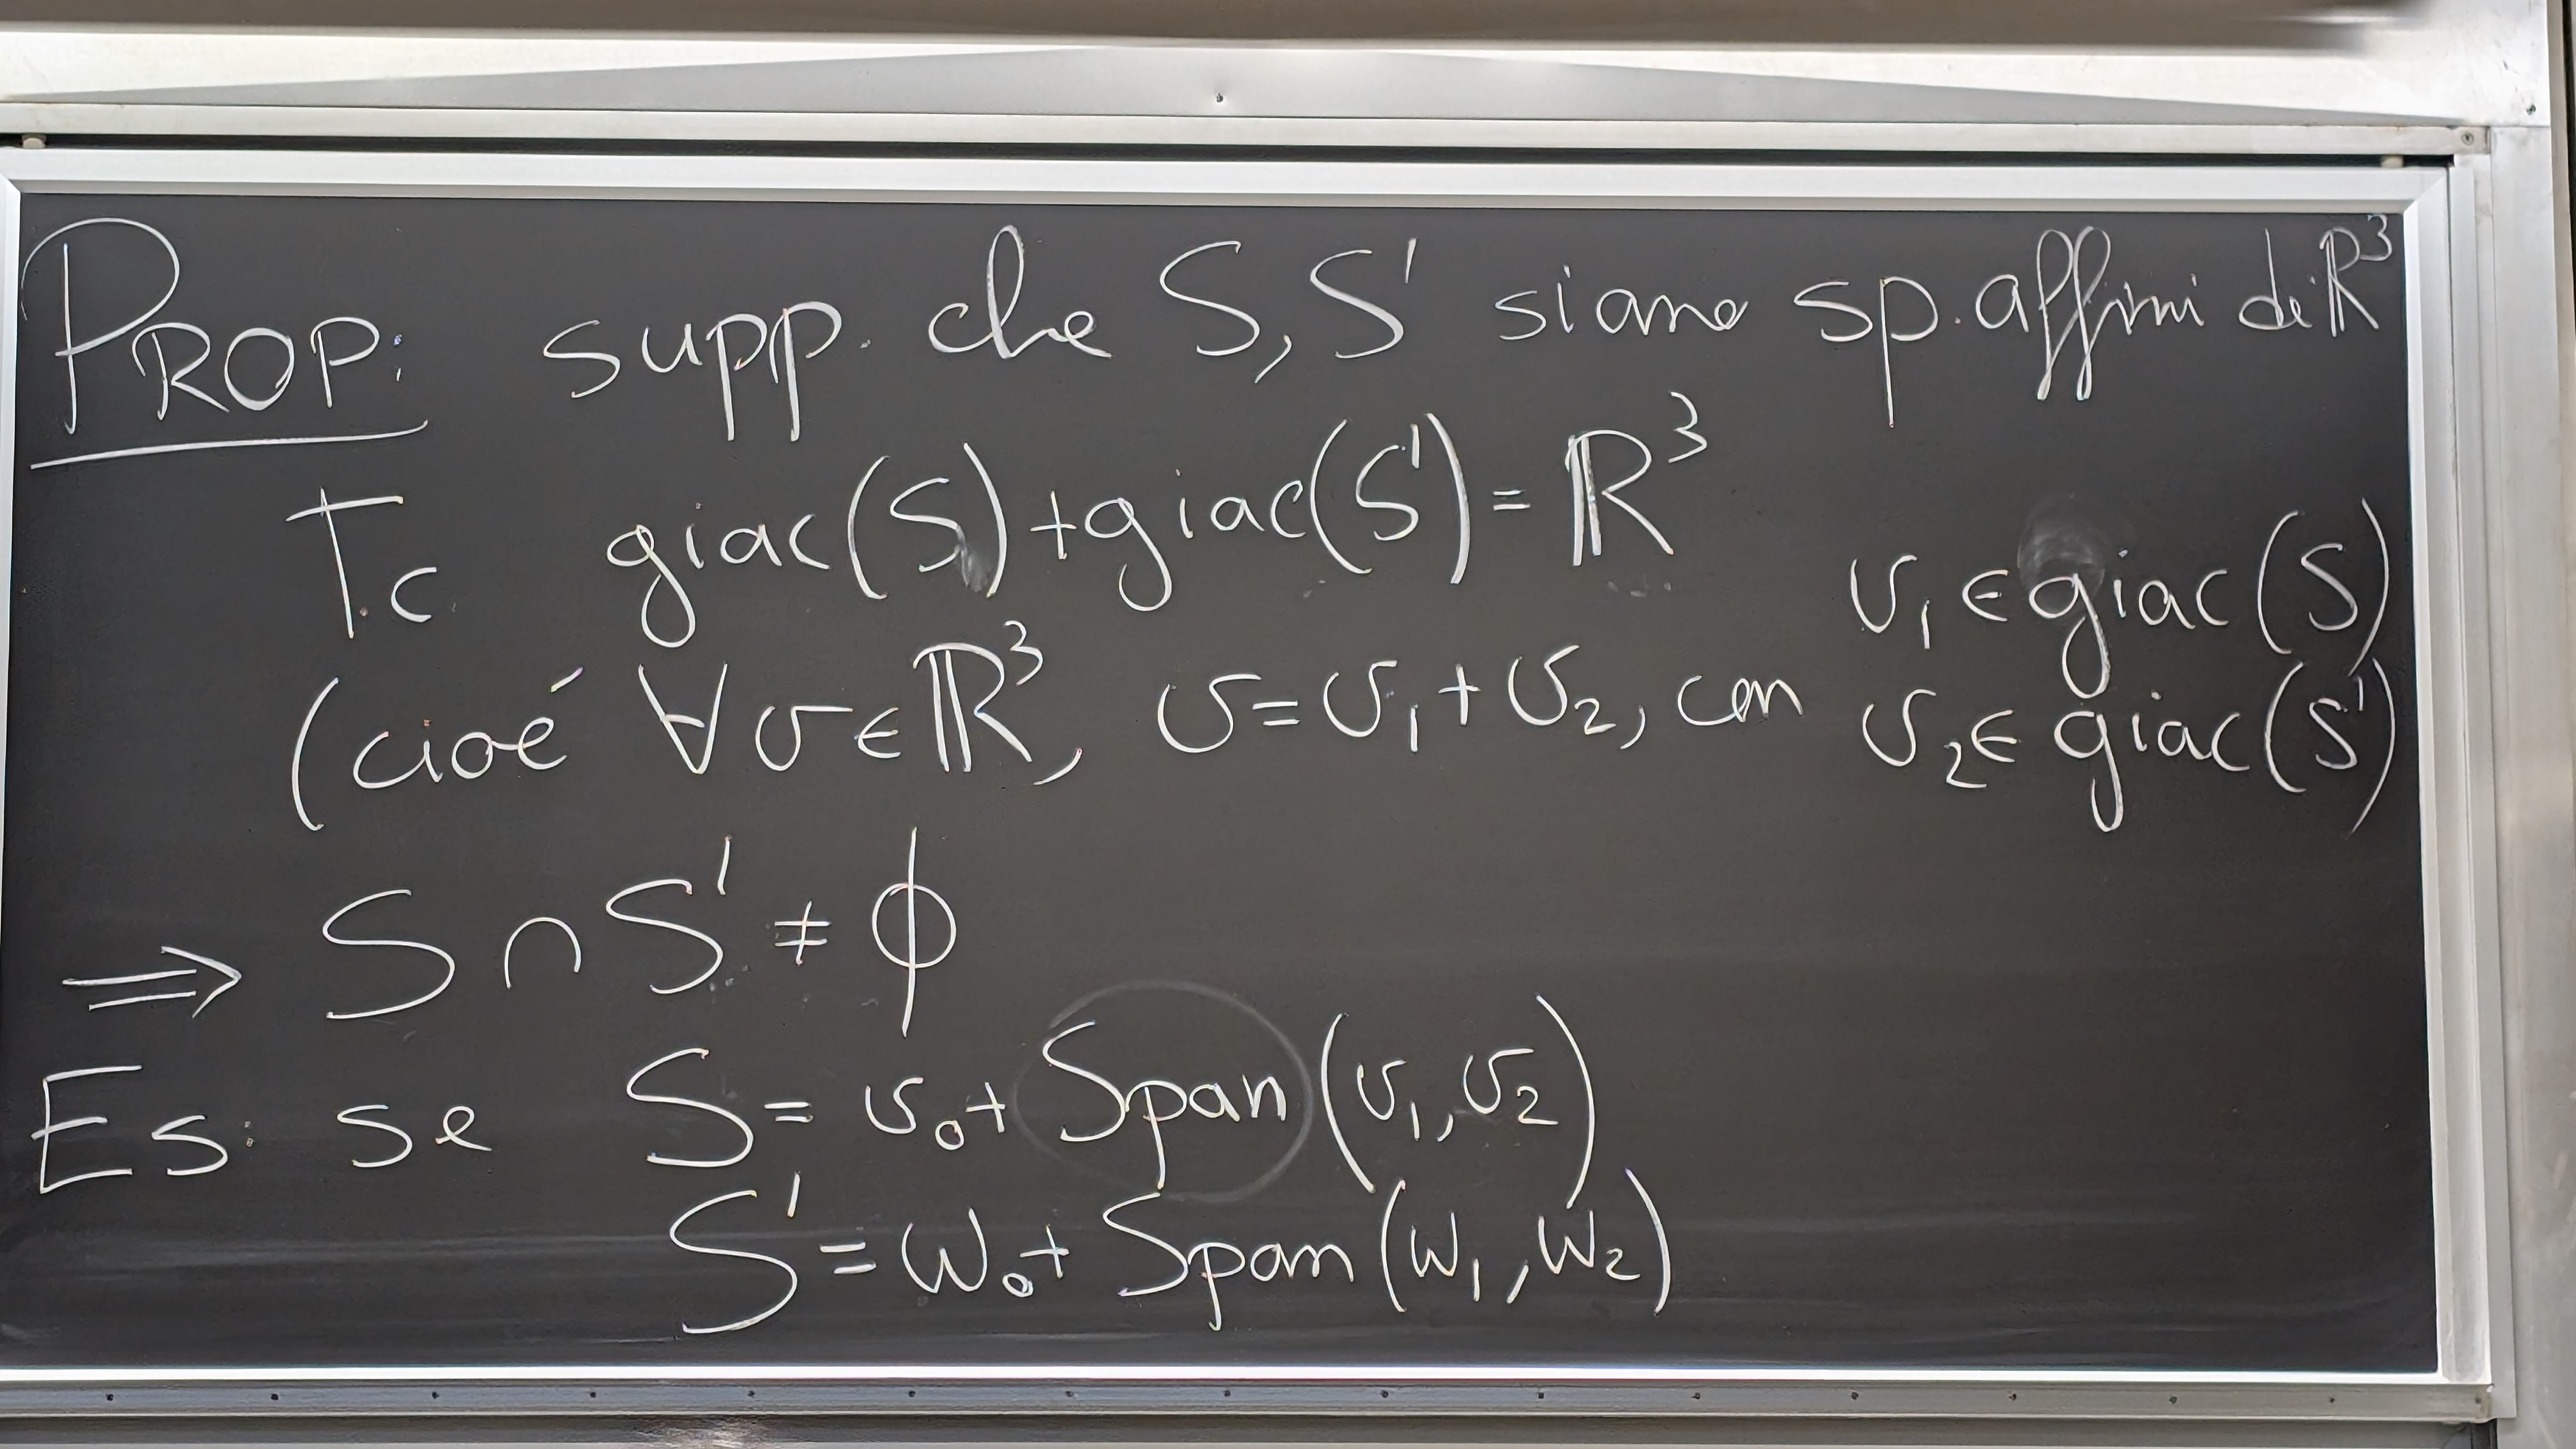 PROP: supp. che S, S' siano sp. affini di ℝ³
T.c. giac(S)+giac(S') = ℝ³
(cioé ∀ v ∈ ℝ³, v = v₁ + v₂, con v₁ ∈ giac(S)
v₂ ∈ giac(S')
⟹ S ∩ S' ≠ ϕ
Es: se S = v₀ + Span(v₁, v₂)
S' = w₀ + Span(w₁, w₂)